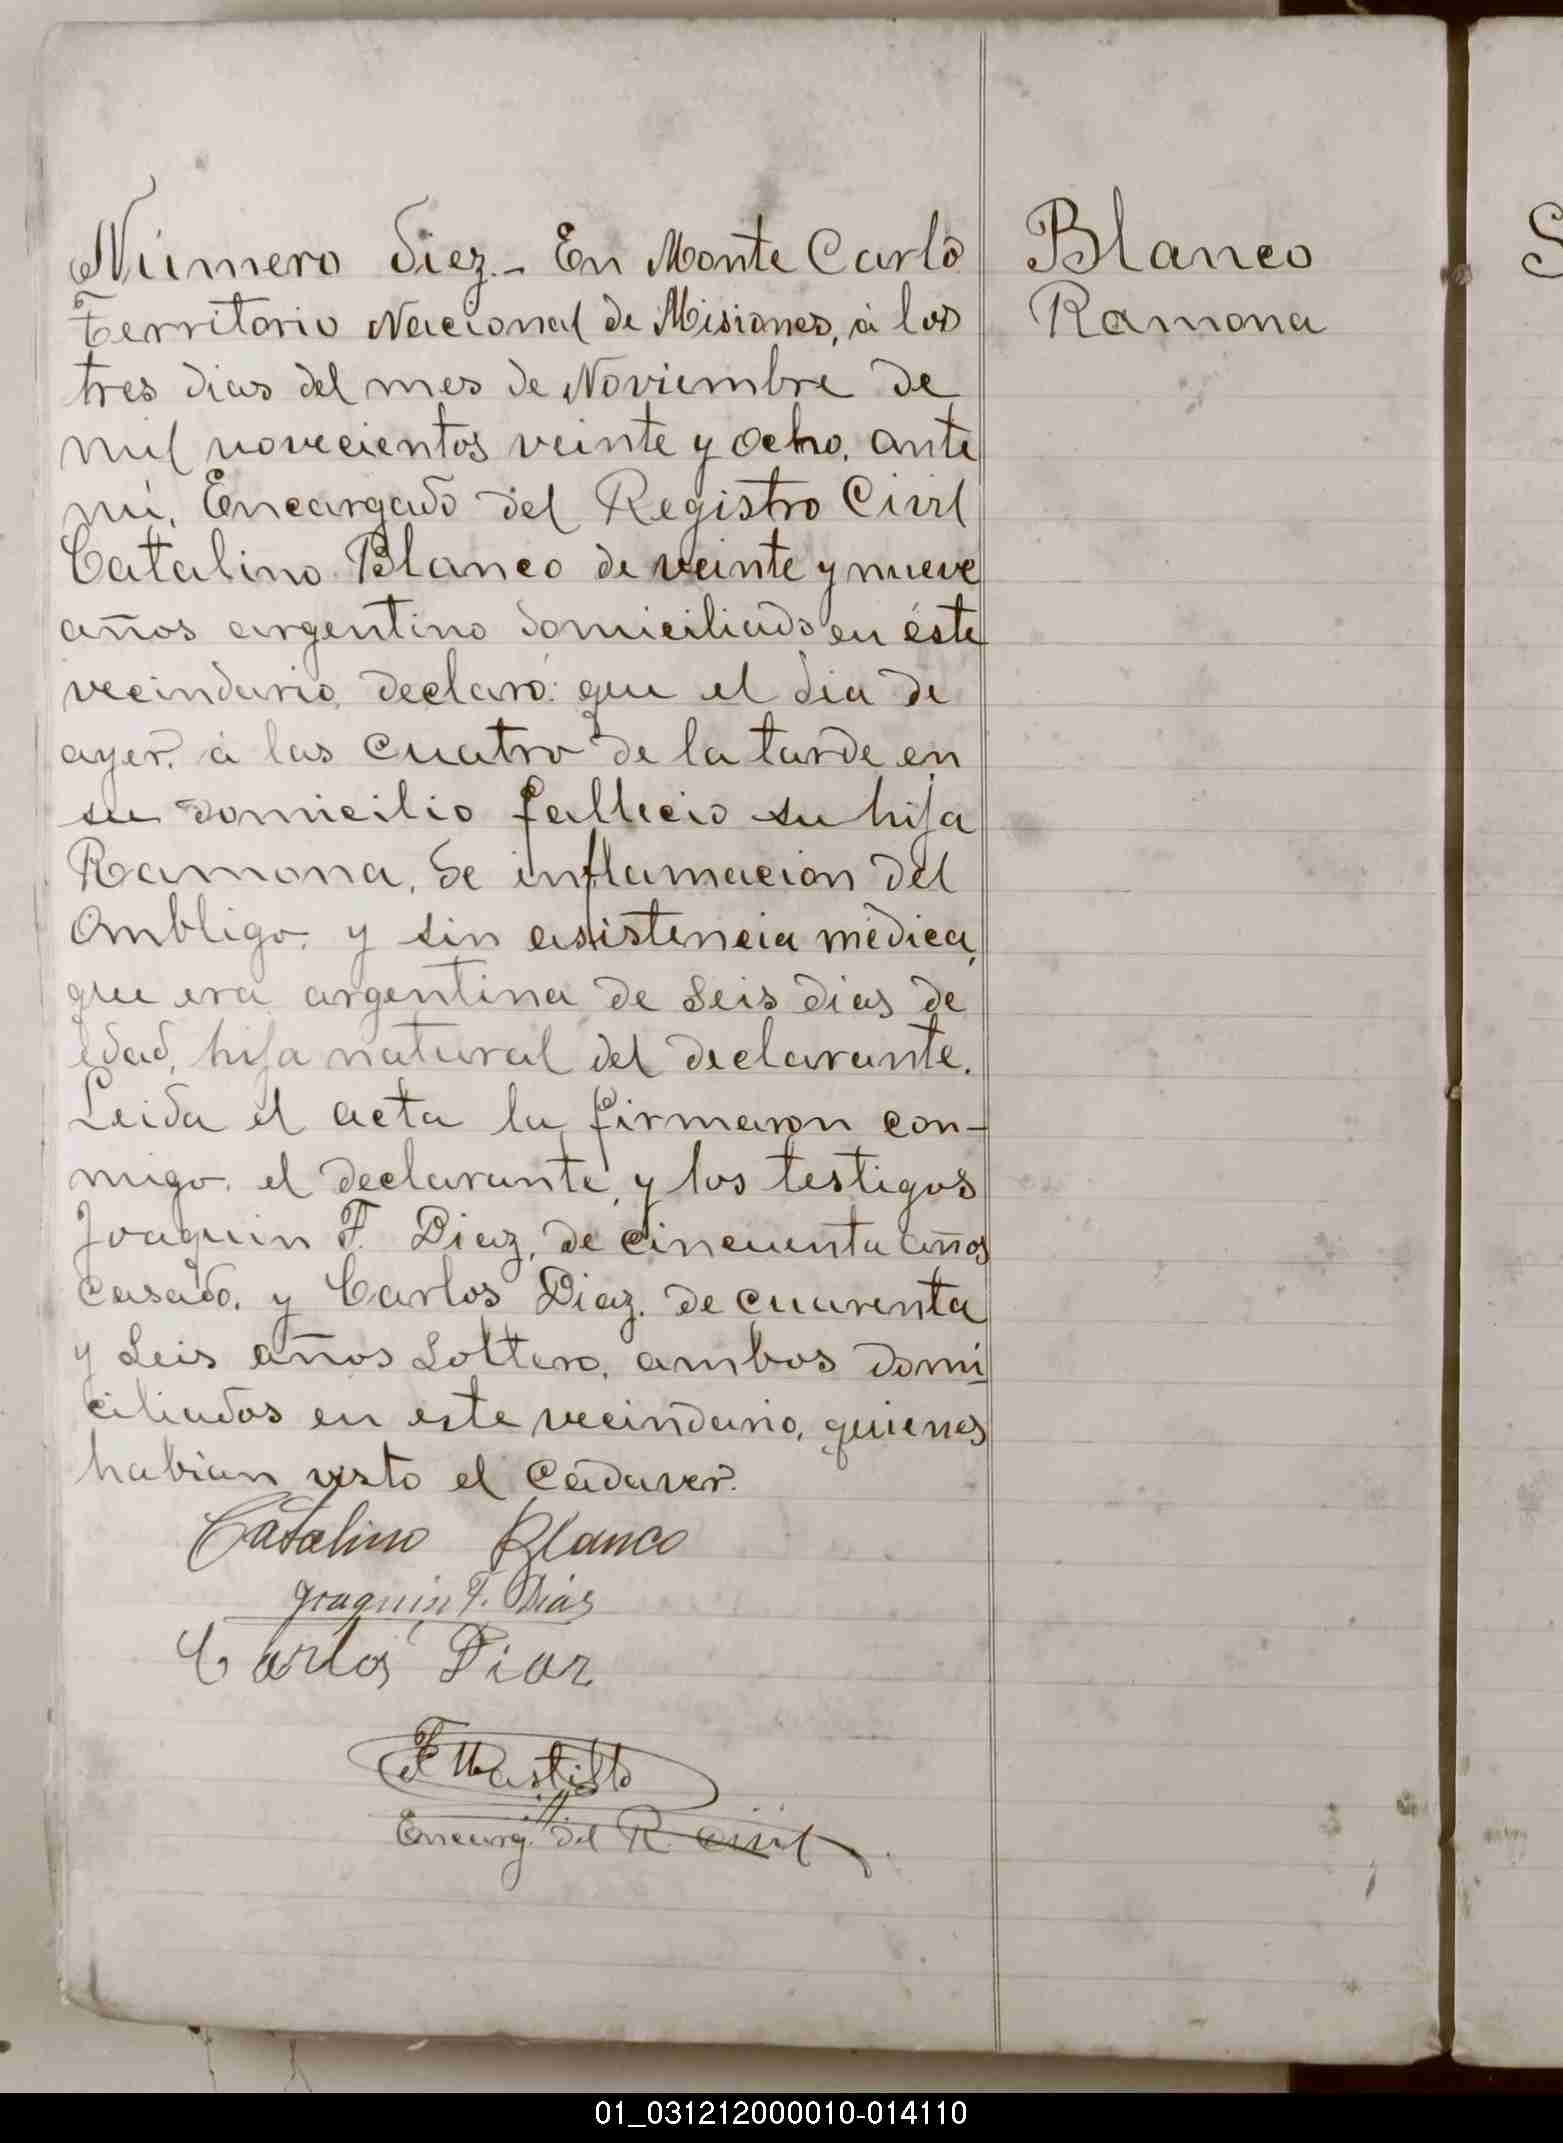 Número diez.- En Monte Carlo
Territorio Nacional de Misiones, á los
tres dias del mes de Noviembre de
mil novecientos veinte y ocho, ante
mi, Encargado del Registro Civil
Catalino Blanco de veinte y nueve
años argentino domiciliado en éste
vecindario, declaró: que el dia de
ayer, á las cuatro de la tarde en
su domicilio fallecio su hija
Ramona, de inflamacion del
Ombligo, y sin asistencia médica,
que era argentina de seis dias de
edad, hija natural del declarante.
Leida el acta la firmaron con-
migo, el declarante, y los testigos
Joaquin F. Diaz, de cincuenta años
casado, y Carlos Diaz, de cuarenta
y seis años soltero, ambos domi
ciliados en este vecindario, quienes
habian visto el cadaver.
Catalino Blanco
Joaquin F. Dias
Carlos Diaz
Encarg. del R. Civil
Blanco
Ramona
S
01_031212000010-014110